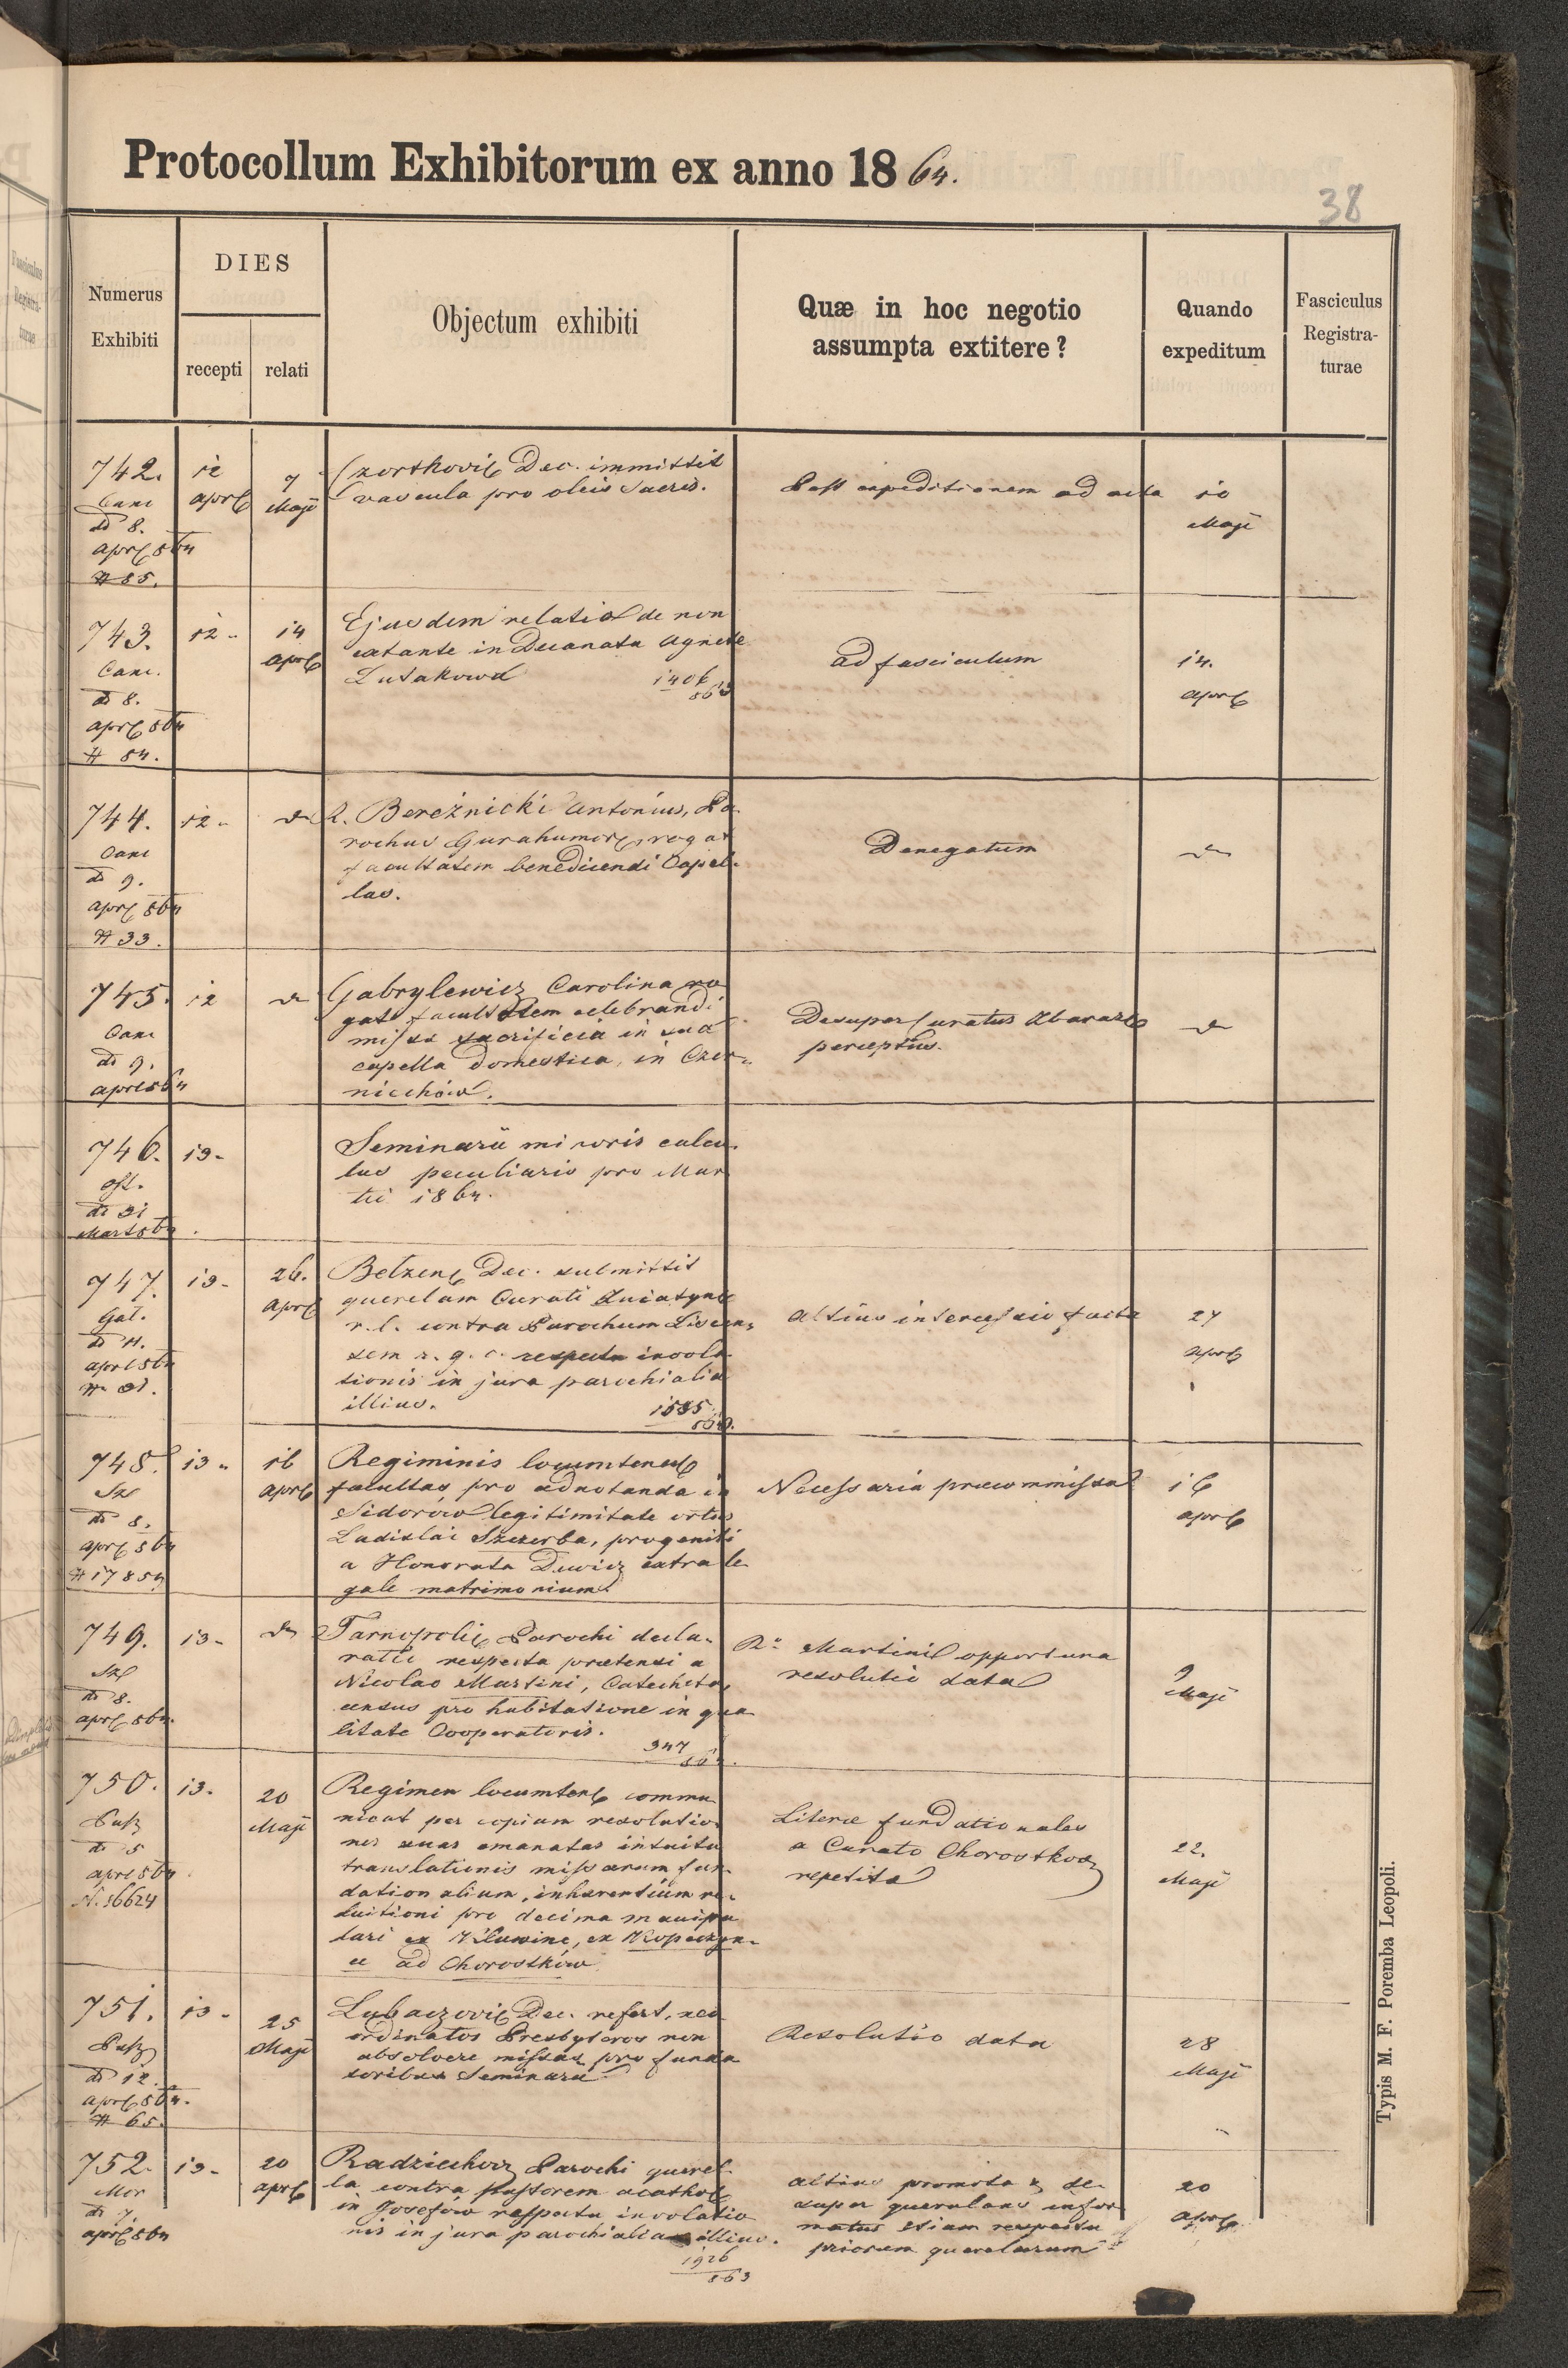 Protocollum Exhibitorum ex anno 1864.
38
Numerus
Exhibiti
DIES
recepti
relati
Objectum exhibiti
Quæ in hoc negotio
assumpta extitere?
Quando
expeditum
Fasciculus
Registra-
turae
742.
Canc
dd 8.
apr 864
# 85.
12
apr
7
Maji
Czorthovi Dec. immittit
vascula pro oleis sacris.
Post expeditionem ad acta
10
Maji
743.
Canc.
dd 8.
apr 864
# 84.
12-
14
apr
Ejusdem relatio de non
extante in Decanatu Agnete
Lutakowa
1406
863
ad fasciculum
14.
apr
744.
Canc
dd 9.
apr 864
# 33.
12-
R. Bereżnicki Antonius, Pa-
rochus Gurahumor, rogat
facultatem benedicendi Capel-
las.
Denegatum
745.
Canc
dd 9.
apr 864
12
Gabrylewicz Carolina ro-
gat facultatem celebrandi
missæ sacrificia in sua
capella domestica, in Czer-
niechów.
Desuper Curatus
perceptus.
746.
dd 31
Mart 864
13-
Seminarii minoris calcu-
lus peculiaris pro Mar-
tii 1864.
747.
Gal.
dd 11.
apr 864
# 31.
13-
26.
apr
Belzen Dec. submittit
querelam Curati
r. l. contra Parochum
sem r. g. c. respectu invola-
tionis in jura parochialia
illius.
1585
Altius intercessio facta
27
apr
748.
dd 8.
apr 864
# 17854
13-
16
apr
Regiminis locumten
facultas pro adnotanda in
Sidorów legitimitate ortus
Ladislai Szczerba, progeniti
a Honorata Dewicz extra le-
gale matrimonium
Necessaria præcommissa
16
apr
749.
dd 8.
apr 864.
13-
Tarnopoli Parochi decla-
ratio respectu prætensi a
Nicolao Martini, Catecheta,
census pro habitatione in qua-
litate Cooperatoris.
347
Ro Martini opportuna
resolutio data
9
Maji
750.
dd 5
apr 864
N. 16624
13.
20
Maji
Regimen locumten commu-
nicat per copiam resolutio-
nes suas emanatas intuitu
translationis missarum fun-
dationalium, inhærentium re-
luitioni pro decima manipu-
lari ex Kluwine, ex Kopeczyn-
ce ad Chorostków
Literæ fundationales
a Curato Chorostkov
repetita
22.
Maji
751.
dd 12.
apr 864.
# 65.
13-
25
Maji
Lubaczovi Dec. refert, neo-
ordinatos Presbyteros non
absolvere missas pro funda-
toribus Seminarii
Resolutio data
28
Maji
752.
dd 7.
apr 864
13-
20
apr
Radziechov Parochi querel-
la contra pastorem acathol
in Josefów respectu involatio-
nis in jura parochialia illius.
1926
863
altius promota & de-
super querulans infor-
matus etiam respectu
priorum querelarum
20
apr
Typis M. F. Poremba Leopoli.